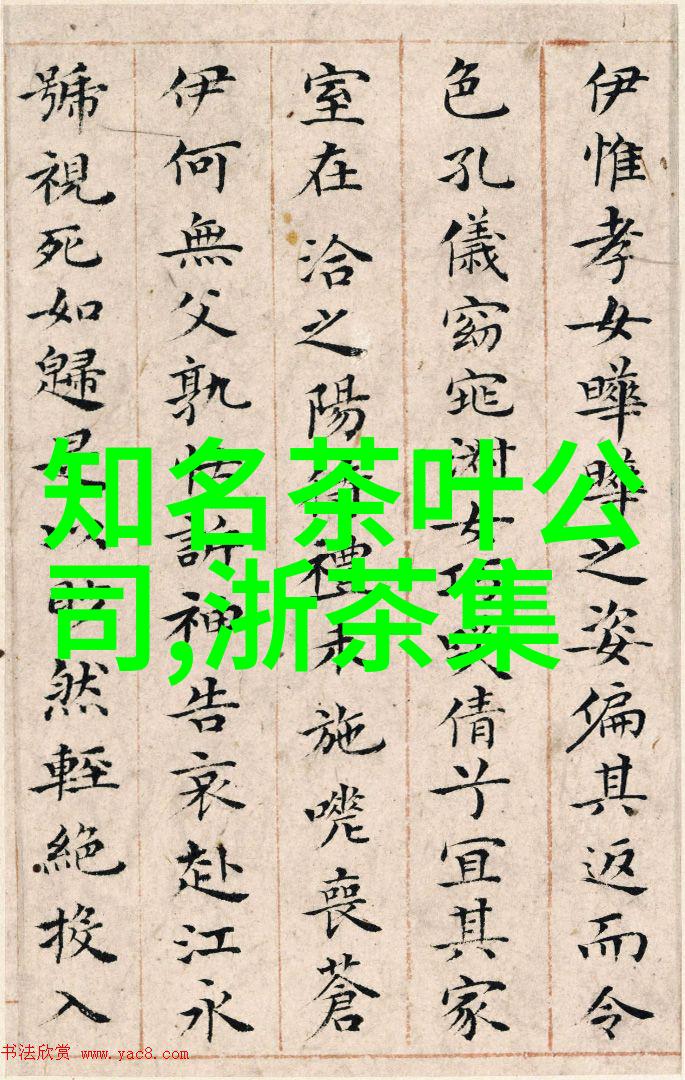 伊惟孝女曄曄之姿偏其返而令
色孔儀窈窕淑女巧笑倩兮宜其家
室在洽之陽待禮未施嗟喪蒼
伊何無父孰怙訴神告哀赴江永
號視死如歸是以眇然輕絕投入
知名茶叶公
司,浙茶集
书法欣赏 www.yac8.com